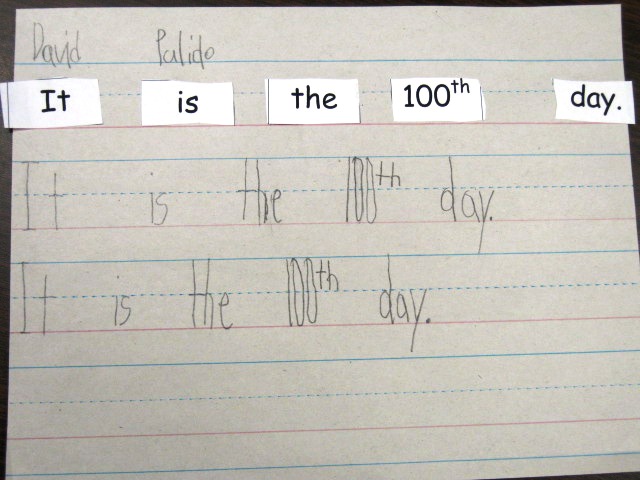 David Pulido
It is the 100th day.
It is the 100th day.
It is the 100th day.